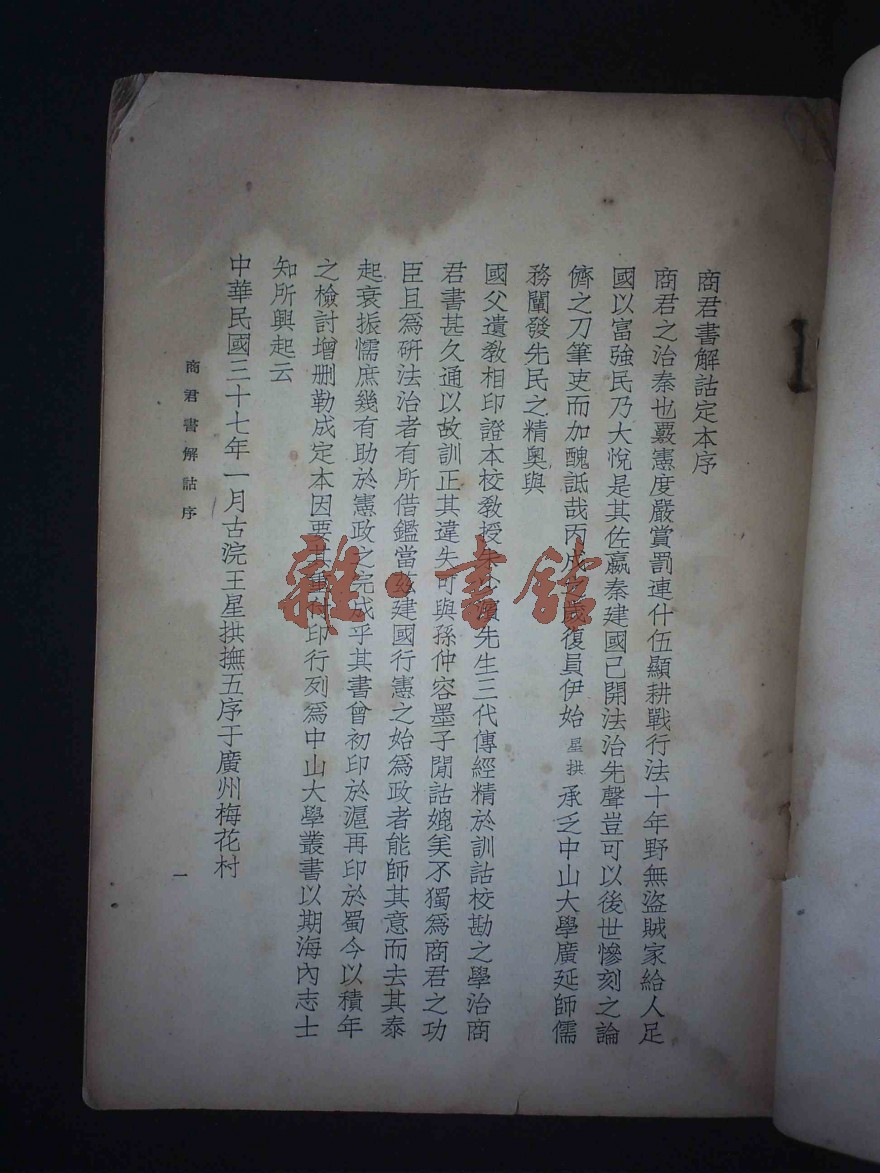 商君書解詁定本序
商君之治秦也覈憲度嚴賞罰連什伍顯耕戰行法十年野無盜賊家給人足
國以富強民乃大悅是其佐嬴秦建國已開法治先聲豈可以後世慘刻之論
儕之刀筆吏而加醜詆哉丙戌之歲復員伊始星拱承乏中山大學廣延師儒
務闡發先民之精奧與
國父遺敎相印證本校敎授朱 瀕先生三代傳經精於訓詁校勘之學治商
君書甚久通以故訓正其違失可與孫仲容墨子閒詁媲美不獨爲商君之功
臣且爲硏法治者有所借鑑當茲建國行憲之始爲政者能師其意而去其泰
起衰振懦庶幾有助於憲政之完成乎其書曾初印於滬再印於蜀今以積年
之檢討增删勒成定本因要其重付印行列爲中山大學叢書以期海內志士
知所興起云
中華民國三十七年一月古浣王星拱撫五序于廣州梅花村
商君書解詁序
一
雜·書館